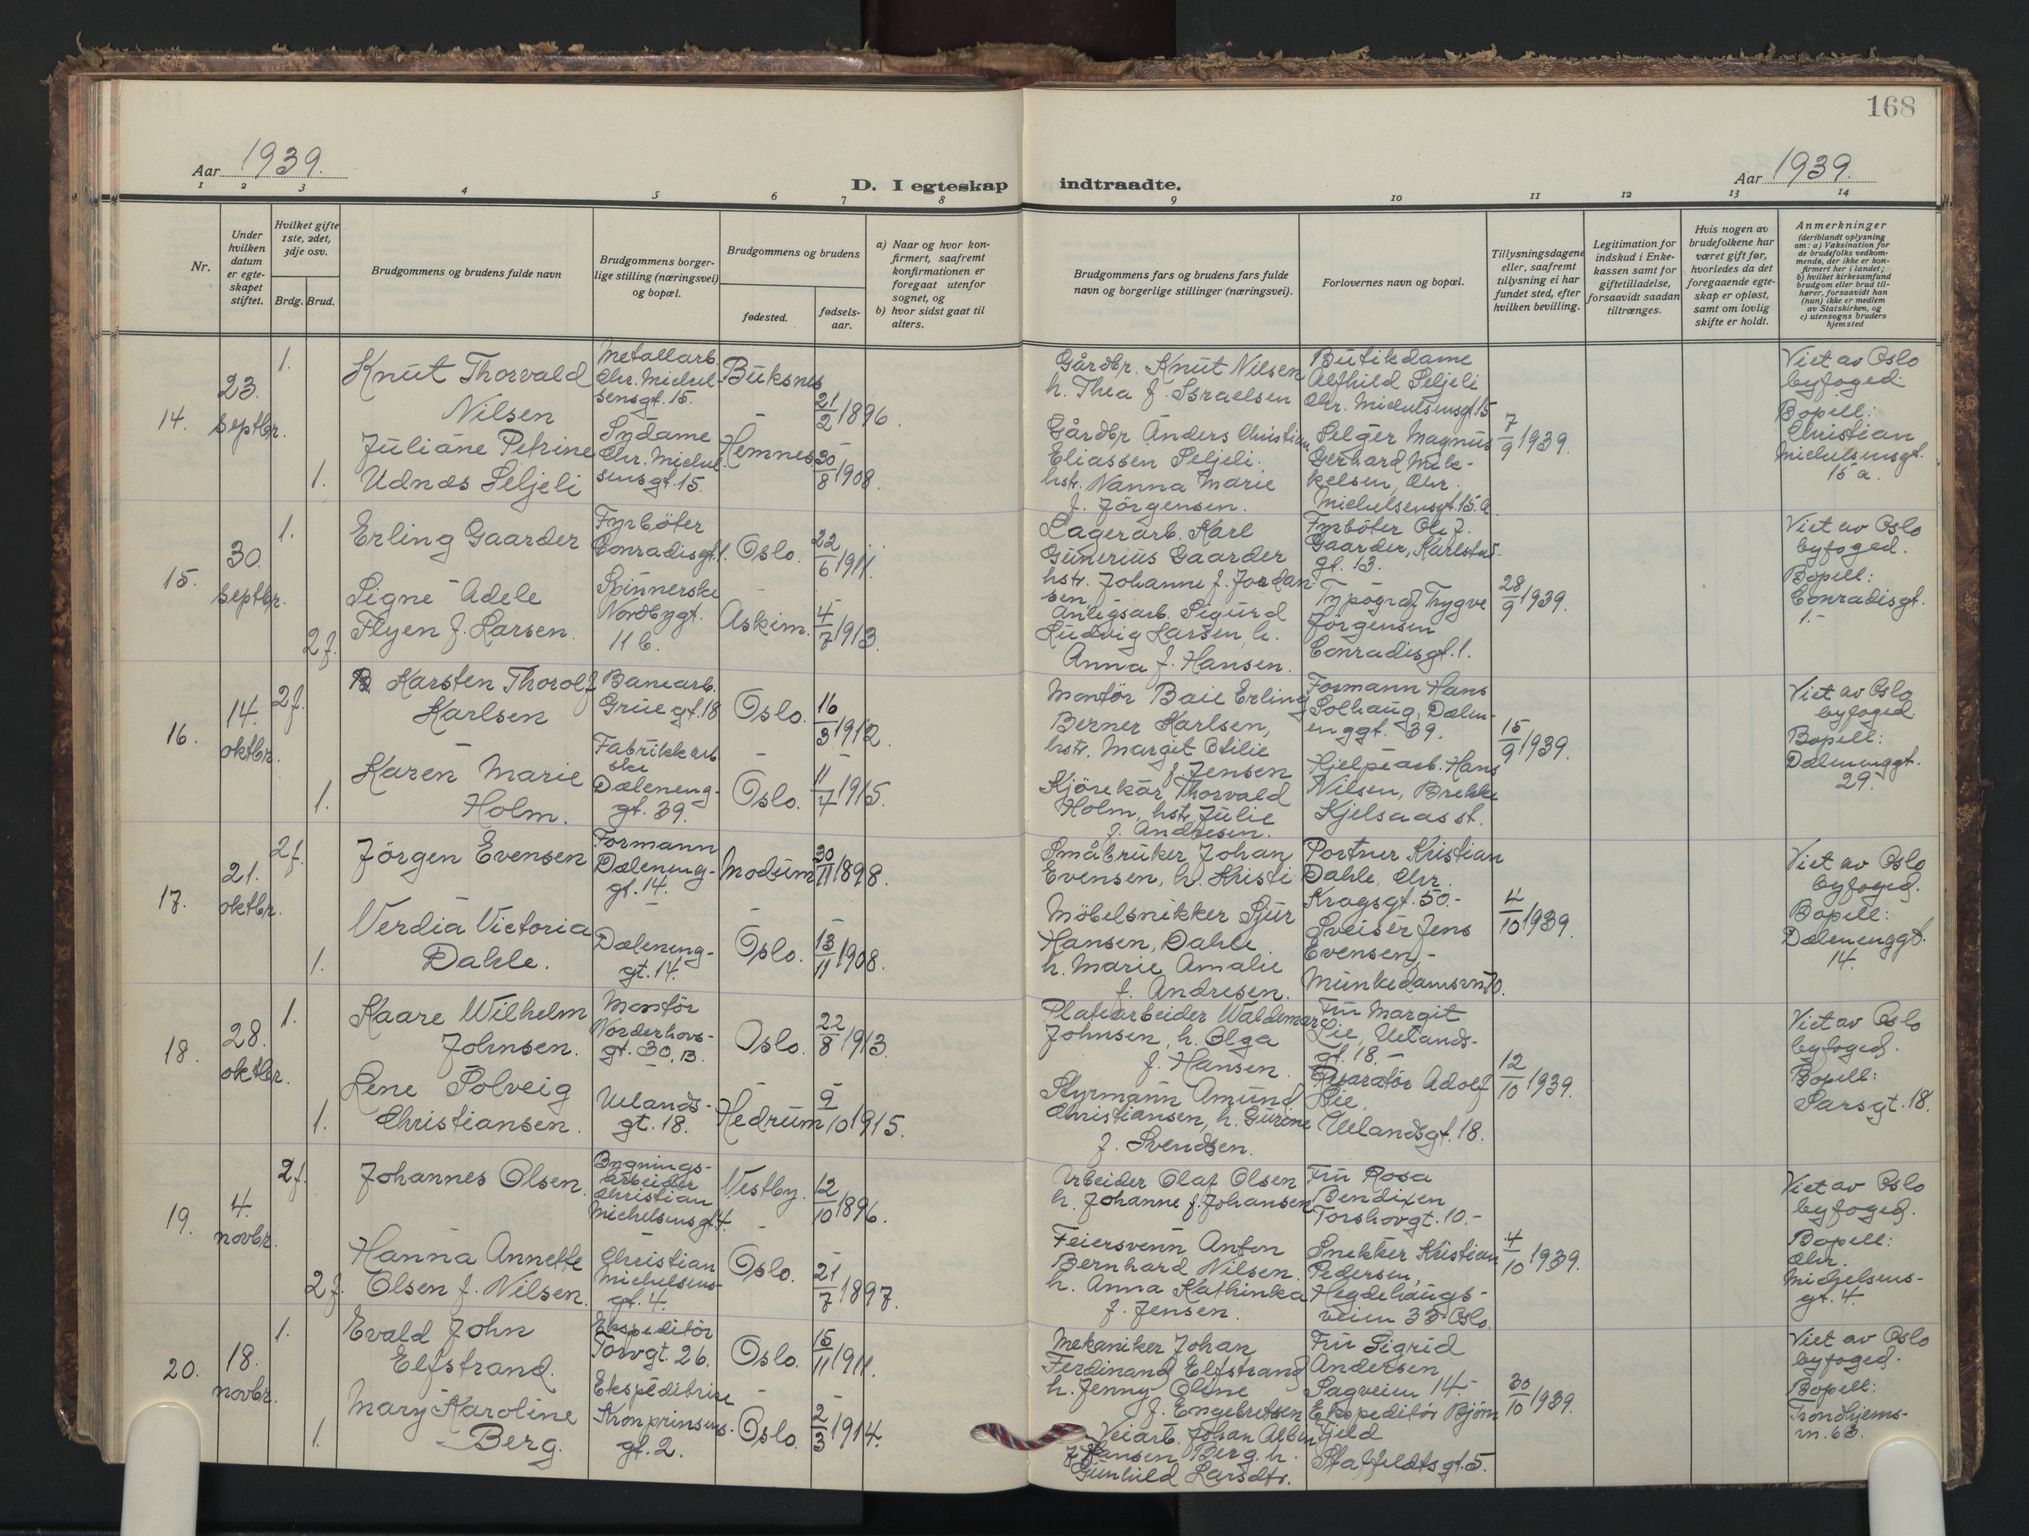 168
Aar 1939.
D. I egteskap indtraadte.
Aar 1939.
1 2 3 4 5 6 7 8 9 10 11 12 13 14
Nr.
Under hvilken datum er egteskapet stiftet.
Hvilket gifte 1ste, 2det, 3dje osv.
Brdg. Brud.
Brudgommens og brudens fulde navn
Brudgommens borgerlige stilling (næringsvei) og bopæl.
Brudgommens og brudens
fødested.
fødselsaar.
a) Naar og hvor konfirmert, saafremt konfirmationen er foregaat utenfor sognet, og
b) hvor sidst gaat til alters.
Brudgommens fars og brudens fars fulde navn og borgerlige stillinger (næringsvei).
Forlovernes navn og bopæl.
Tillysningsdagene eller, saafremt tillysning ei har fundet sted, efter hvilken bevilling.
Legitimation for indskud i Enkekassen samt for giftetilladelse, forsaavidt saadan tiltrænges.
Hvis nogen av brudefolkene har været gift før, hvorledes da det foregaaende egteskap er opløst, samt om lovlig skifte er holdt.
Anmerkninger
(deriblandt oplysning om: a) Vaksination for de brudefolks vedkommende, der ikke er konfirmert her i landet;
b) hvilket kirkesamfund brudgom eller brud tilhører, forsaavidt han (hun) ikke er medlem av Statskirken, og
c) utensogns bruders hjemsted
14.
23. septbr.
1.
Knut Thorvald
Nilsen
Metallarb
Chr. Michel-
sensgt. 15.
Buksnes
21/2 1896.
1.
Juliane Petrine
Udnæs Seljeli
Sydame
Chr. Michel-
sensgt. 15.
Hemnes
30/8 1908.
Gårdbr. Knut Nilsen
h. Thea f. Israelsen
Gårdbr Anders Christian
Eliassen Seljeli.
hstr. Nanna Marie
f. Jörgensen.
Butikdame
Alfhild Seljeli
Chr. Michelsensgt. 15
Selger Magnus
Gerhard Mik-
kelsen, Chr.
Michelsensgt. 15. a
7/9 1939.
Viet av Oslo
byfoged.
Bopell:
Christian
Michelsensgt.
15 a.
15.
30. septbr.
1.
Erling Gaarder
Fyrböter
Conradisgt. 1.
Oslo.
22/6 1911.
2 f.
Signe Adele
Flyen f. Larsen.
Spinnerske
Nordbygt.
11 b.
Askim.
4/7 1913.
Lagerarb. Karl
Gunerius Gaarder
hstr. Johanne f. Jordan-
sen.
Anligsarb. Sigurd
Ludvig Larsen, h.
Anna f. Hansen.
Fyrböter Ole J.
Gaarder, Karlstad-
gt. 13.
Typograf Trygve
Jörgensen
Conradisgt. 1.
28/9 1939.
Viet av Oslo
byfoged.
Bopell:
Conradisgt.
1.-
16.
14. oktbr.
2 f.
Karsten Thorolf
Karlsen
Banearb.
Grüegt. 18
Oslo.
16/3 1912.
1.
Karen Marie
Holm.
Fabrikkarb
ske
Dæleneng-
gt. 39.
Oslo.
11/7 1915.
Montör Baie Erling
Berner Karlsen,
hstr. Margit Otilie
f. Jensen
Kjörekar Thorvald
Holm, hstr. Julie
f. Andresen.
Formann Hans
Solhaug, Dælen-
enggt. 39.
Hjelpearb. Hans
Nilsen, Brekke
Kjelsaasst.
15/9 1939.
Viet av Oslo
byfoged
Bopell:
Dælenenggt.
29.
17.
21. oktbr.
2 f.
Jörgen Evensen
Formann
Dæleneng-
gt. 14.
Modum
30/11 1898.
1.
Verdia Victoria
Dahle.
Dæleneng-
gt. 14.
Oslo.
13/11 1908.
Småbruker Johan
Evensen, h. Kristi
Möbelsnikker Sjur
Hansen, Dahle
h. Marie Amalie
f. Andresen.
Portner Kristian
Dahle, Chr.
Krogsgt. 50.-
Sveiser Jens
Evensen,-
Munkedamsvn 70.
4/10 1939.
Viet av Oslo
byfoged.
Bopell:
Dælenenggt.
14.
18.
28. oktbr.
1.
Kaare Wilhelm
Johnsen.
Montör
Norderhovs-
gt. 30, B.
Oslo.
22/8 1913.
1.
Lene Solveig
Christiansen.
Uelands-
gt. 18.
Hedrum
9/10 1915.
Platearbeider Waldemar
Johnsen, h. Olga
f. Hansen.
Styrmann Amund
Christiansen, h. Gurine
f. Svendsen.
Fru Margit
Lie, Uelands-
gt. 18.-
Reparatör Adolf
Lie
Uelandsgt. 18.
12/10 1939.
Viet av Oslo
byfoged.
Bopell:
Sarsgt. 18.
19.
4. novbr.
2 f.
Johannes Olsen.
Bygnings-
arbeider
Christian
Michelsensgt. 4.
Vestby.
12/10 1896.
2 f.
Hanna Annette
Olsen f. Nilsen.
Christian
Michelsens-
gt. 4.
Oslo.
21/7 1897.
Arbeider Olaf Olsen
h. Johanne f. Johansen
Feiersvenn Anton
Bernhard Nilsen.
h. Anna Kathinka
f. Jensen.
Fru Rosa
Bendixen
Torshovgt. 10.-
Snekker Kristian
Pedersen,
Hegdehaugs-
veien 33 Oslo.
4/10 1939.
Viet av Oslo
byfoged.
Bopell:
Chr.
Michelsens-
gt. 4.
20.
18. novbr.
1.
Evald John
Elfstrand.
Ekspeditör
Torvgt. 26.
Oslo.
15/11 1911.
1.
Mary Karoline
Berg.
Ekspeditrise
Kronprinsens-
gt. 2.
Oslo.
2/3 1914.
Mekaniker Johan
Ferdinand Elfstrand
h. Jenny Oline
f. Engebretsen
Veiarb. Johan Albin
Hansen Berg. h.
Gunhild Larsdtr.
Fru Sigrid
Andersen
Sagveien 14.-
Ekspeditör Björn
Fjeld
Stalfeldtsgt. 5.
30/10 1939.
Viet av Oslo
byfoged.
Bopell:
Trondhjems-
vn. 63.